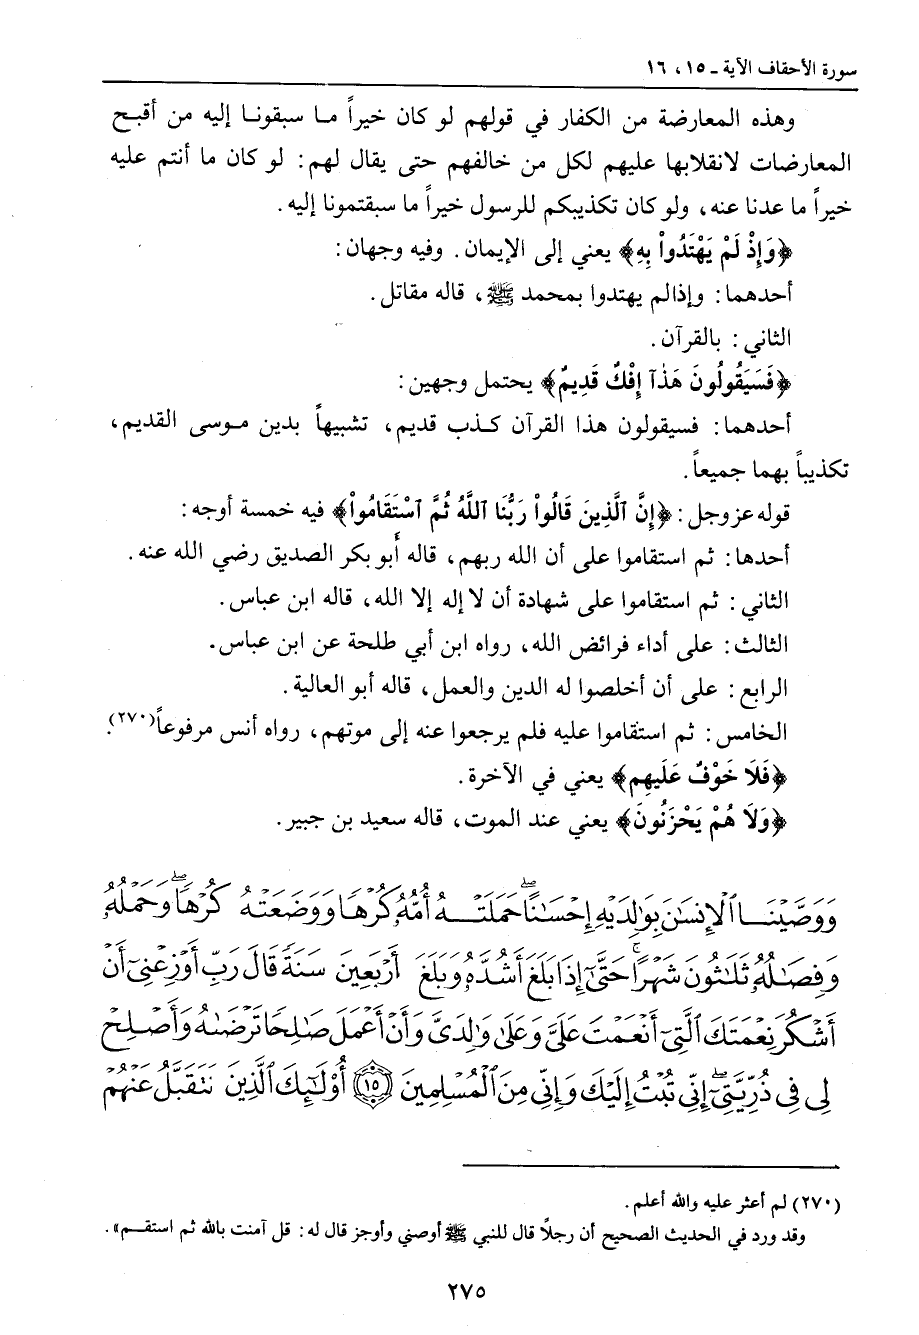 سورة الأحقاف الآية ـ ١٥، ١٦
وهذه المعارضة من الكفار في قولهم لو كان خيراً ما سبقونا إليه من أقبح
المعارضات لانقلابها عليهم لكل من خالفهم حتى يقال لهم: لو كان ما أنتم عليه
خيراً ما عدنا عنه، ولو كان تكذيبكم للرسول خيراً ما سبقتمونا إليه.
﴿وَإِذْ لَمْ يَهْتَدُواْ بِهِ﴾ يعني إلى الإيمان. وفيه وجهان:
أحدهما: وإذالم يهتدوا بمحمد ﷺ، قاله مقاتل.
الثاني: بالقرآن.
﴿فَسَيَقُولُونَ هَذَآ إِفْكٌ قَدِيمٌ﴾ يحتمل وجهين:
أحدهما: فسيقولون هذا القرآن كذب قديم، تشبيهاً بدين موسى القديم،
تكذيباً بهما جميعاً.
قوله عز وجل: ﴿إِنَّ ٱلَّذِينَ قَالُواْ رَبُّنَا ٱللَّهُ ثُمَّ ٱسْتَقَامُواْ﴾ فيه خمسة أوجه:
أحدها: ثم استقاموا على أن الله ربهم، قاله أبو بكر الصديق رضي الله عنه.
الثاني: ثم استقاموا على شهادة أن لا إله إلا الله، قاله ابن عباس.
الثالث: على أداء فرائض الله، رواه ابن أبي طلحة عن ابن عباس.
الرابع: على أن أخلصوا له الدين والعمل، قاله أبو العالية.
الخامس: ثم استقاموا عليه فلم يرجعوا عنه إلى موتهم، رواه أنس مرفوعاً(٢٧٠).
﴿فَلَا خَوْفٌ عَلَيهِم﴾ يعني في الآخرة.
﴿وَلَا هُمْ يَحْزَنُونَ﴾ يعني عند الموت، قاله سعيد بن جبير.
وَوَصَّيْنَا ٱلْإِنسَٰنَ بِوَٰلِدَيْهِ إِحْسَٰنًا ۖ حَمَلَتْهُ أُمُّهُۥ كُرْهًا وَوَضَعَتْهُ كُرْهًا ۖ وَحَمْلُهُۥ
وَفِصَٰلُهُۥ ثَلَٰثُونَ شَهْرًا ۚ حَتَّىٰٓ إِذَا بَلَغَ أَشُدَّهُۥ وَبَلَغَ أَرْبَعِينَ سَنَةً قَالَ رَبِّ أَوْزِعْنِىٓ أَنْ
أَشْكُرَ نِعْمَتَكَ ٱلَّتِىٓ أَنْعَمْتَ عَلَىَّ وَعَلَىٰ وَٰلِدَىَّ وَأَنْ أَعْمَلَ صَٰلِحًا تَرْضَىٰهُ وَأَصْلِحْ
لِى فِى ذُرِّيَّتِىٓ ۖ إِنِّى تُبْتُ إِلَيْكَ وَإِنِّى مِنَ ٱلْمُسْلِمِينَ ١٥ أُوْلَٰٓئِكَ ٱلَّذِينَ نَتَقَبَّلُ عَنْهُمْ
(٢٧٠) لم أعثر عليه والله أعلم.
وقد ورد في الحديث الصحيح أن رجلاً قال للنبي ﷺ أوصني وأوجز قال له: قل آمنت بالله ثم استقم».
٢٧٥